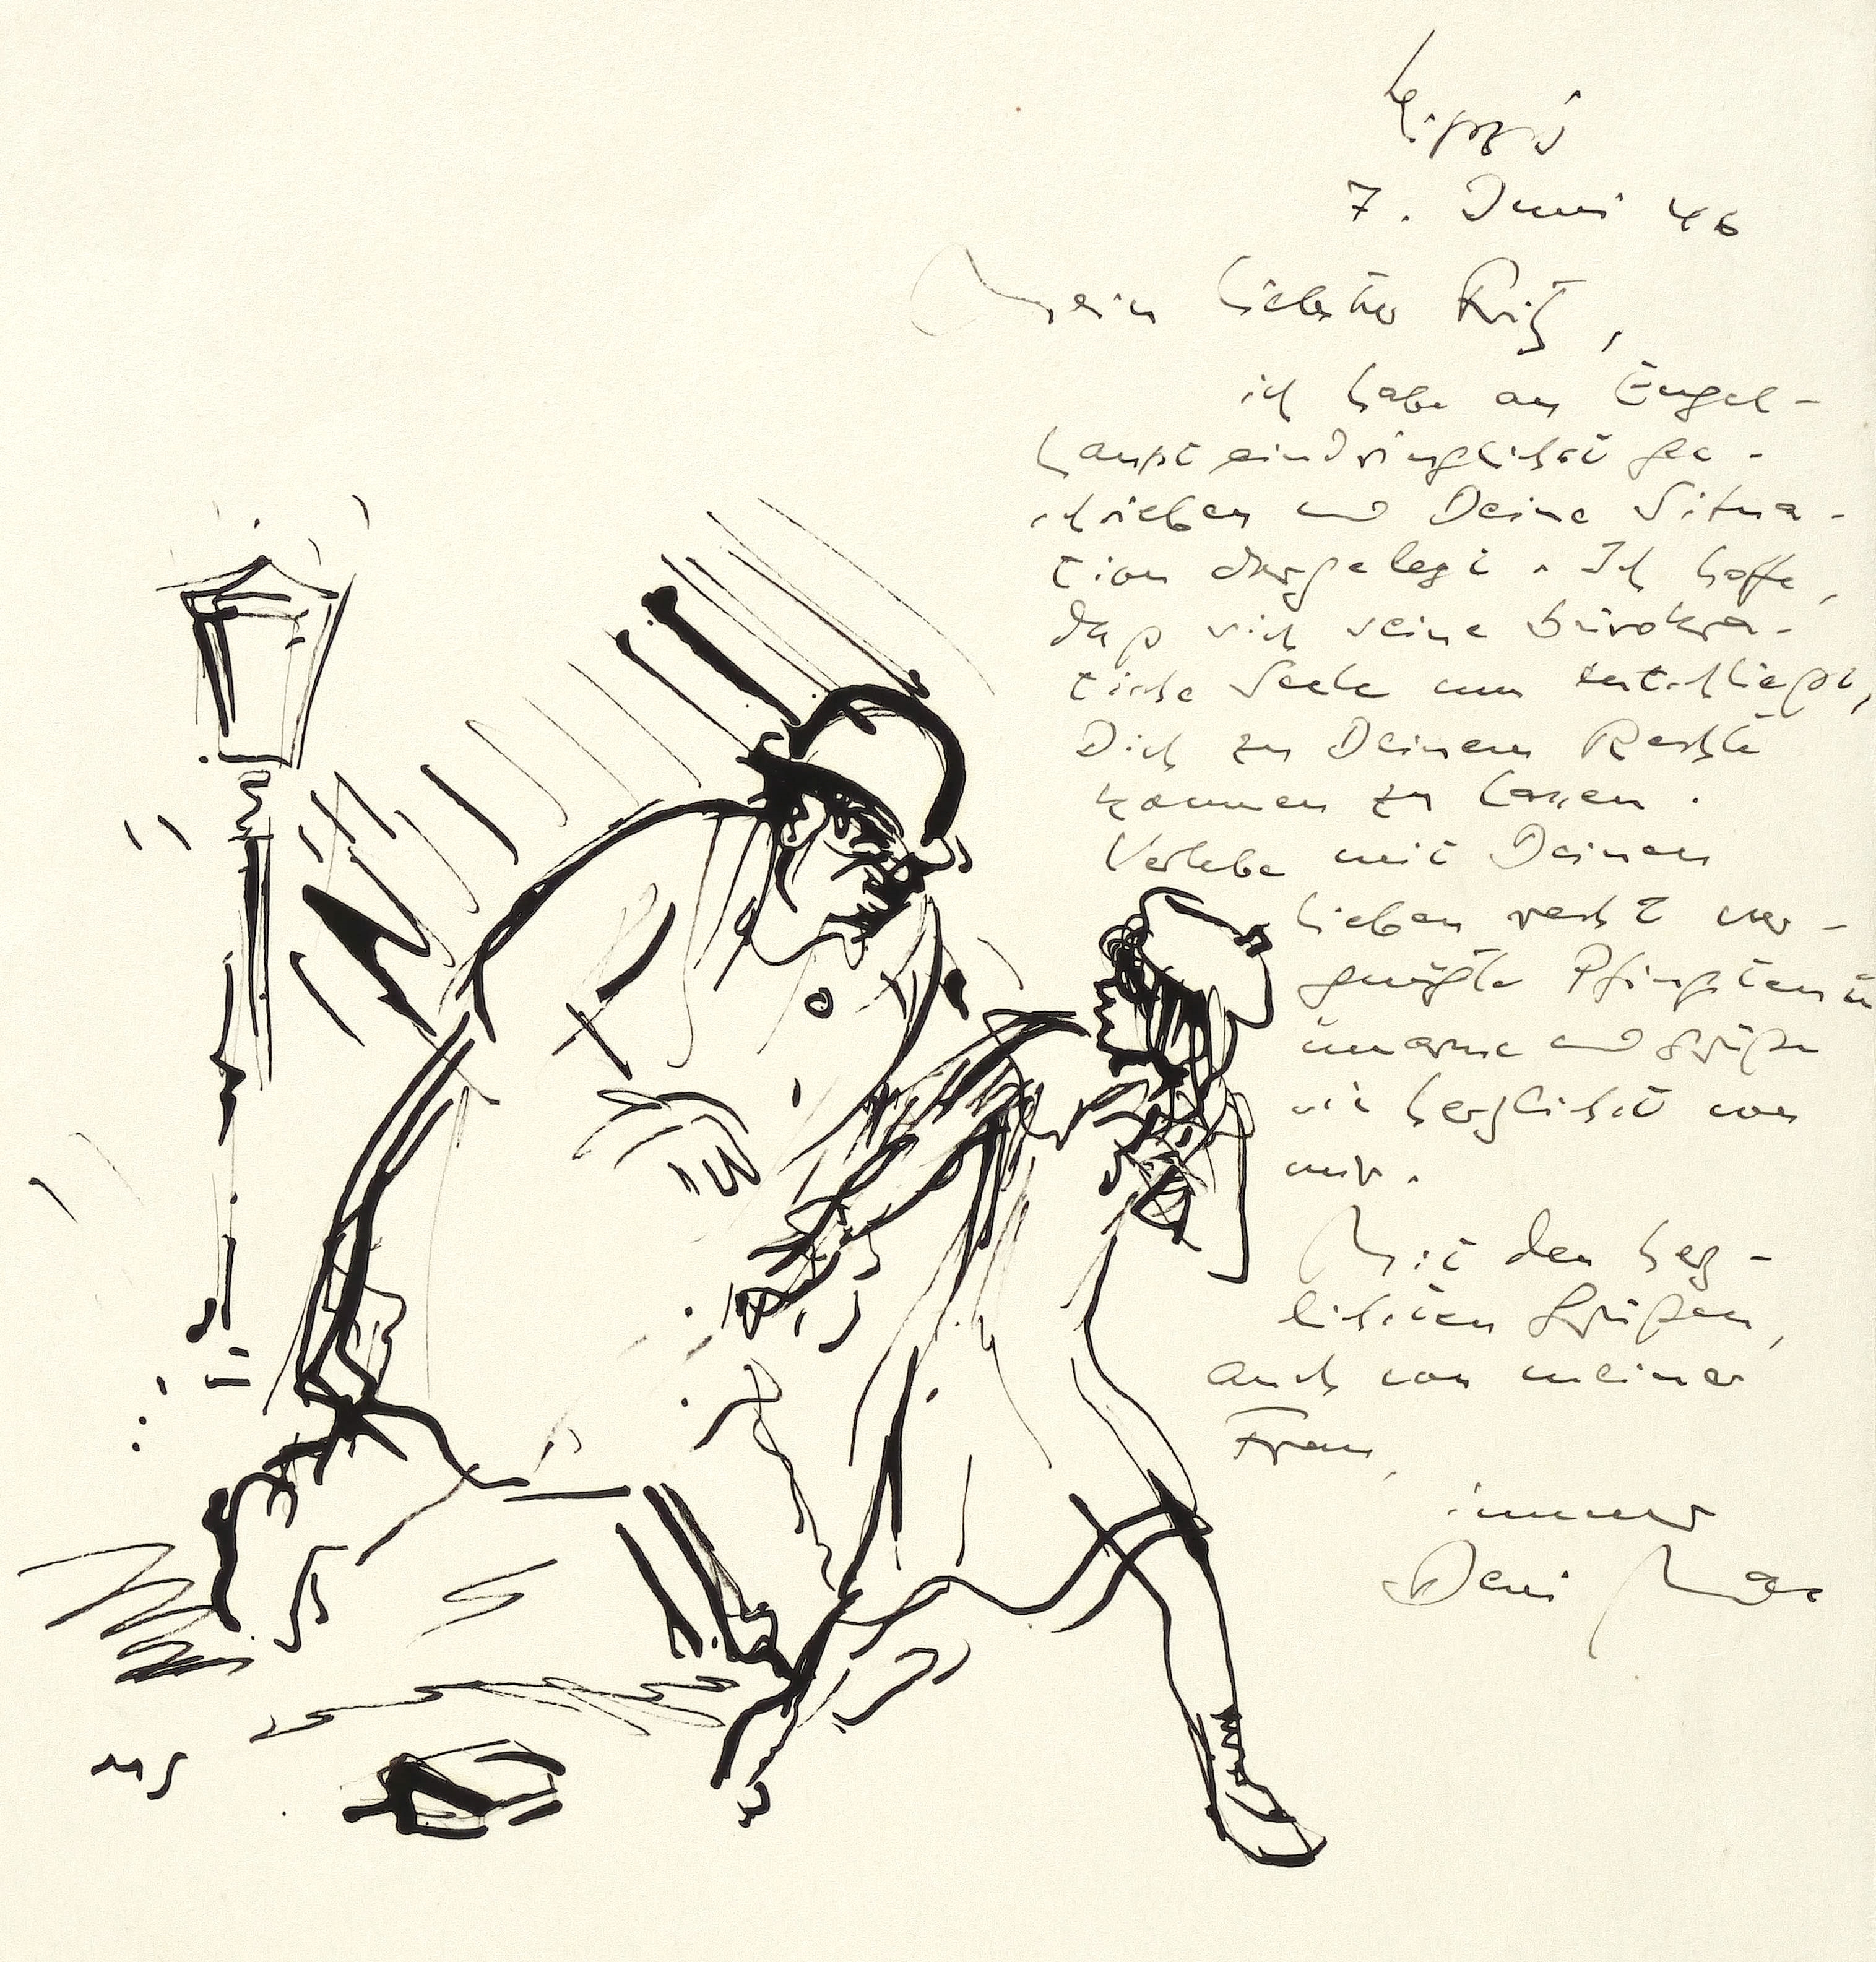 Leipzig
7. Juni 46
Mein liebster Fritz,
ich habe an Engel-
haupt eindringlichst ge-
schrieben und Deine Situa-
tion dargelegt. Ich hoffe,
daß sich seine bürokra-
tische Seele nun entschließt,
Dich zu Deinem Rechte
kommen zu lassen.
Verlebe mit Deinen
Lieben recht ver-
gnügte Pfingsten u
umarme und grüße
sie herzlichst von
mir.
Mit den herz-
lichsten Grüßen,
auch von meiner
Frau,
immer
Dein Max
MS